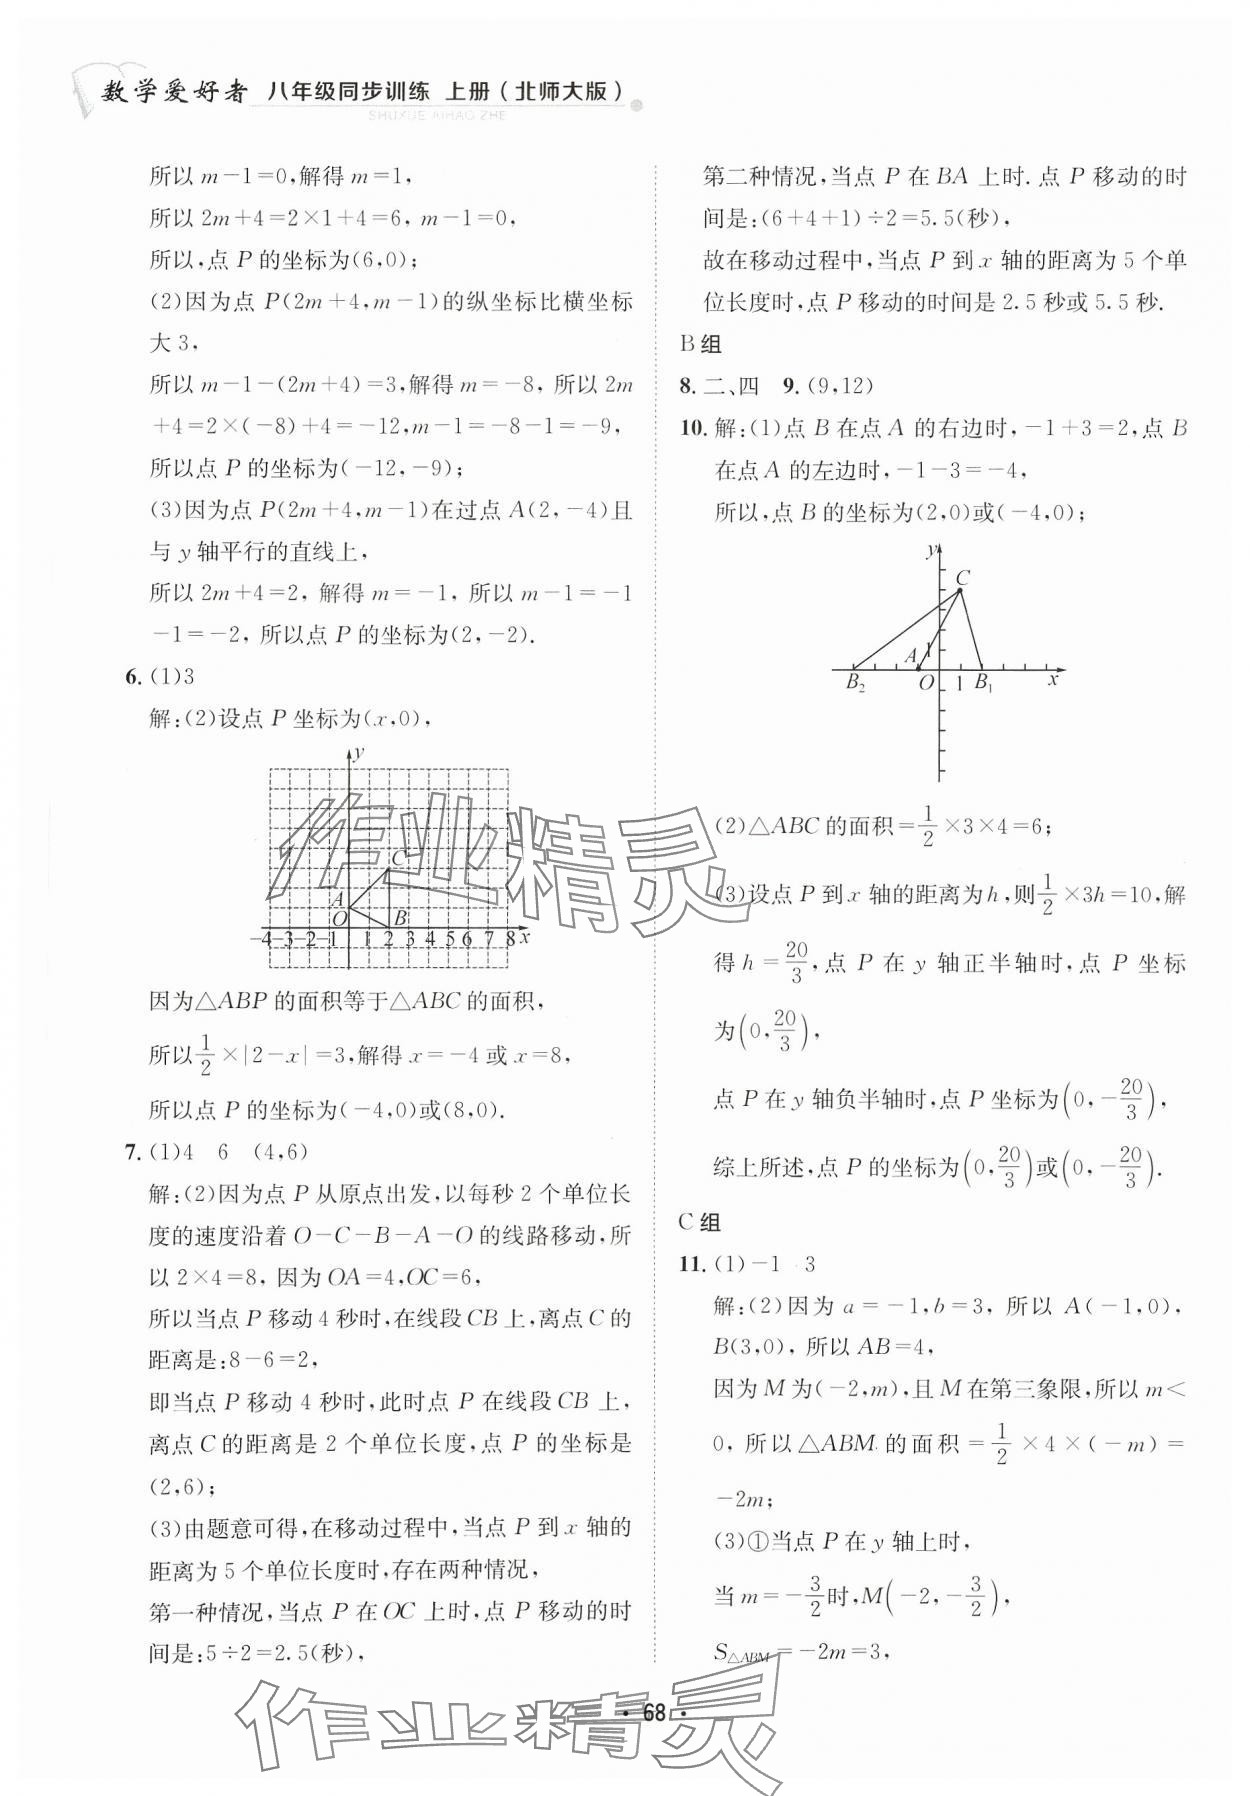 数学爱好者 八年级同步训练 上册(北师大版)
SHUXUE AIHAO ZHE
所以 m-1=0,解得 m=1,
所以 2m+4=2×1+4=6, m-1=0,
所以,点 P 的坐标为(6,0);
(2)因为点 P(2m+4,m-1)的纵坐标比横坐标
大 3,
所以 m-1-(2m+4)=3,解得 m=-8, 所以 2m
+4=2×(-8)+4=-12,m-1=-8-1=-9,
所以点 P 的坐标为(-12,-9);
(3)因为点 P(2m+4,m-1)在过点 A(2,-4)且
与 y 轴平行的直线上,
所以 2m+4=2, 解得 m=-1, 所以 m-1=-1
-1=-2, 所以点 P 的坐标为(2,-2).
6. (1)3
解:(2)设点 P 坐标为(x,0),
y
C
A
O B
-4-3-2-1 1 2 3 4 5 6 7 8 x
因为△ABP 的面积等于△ABC 的面积,
所以 1/2 ×|2-x|=3,解得 x=-4 或 x=8,
所以点 P 的坐标为(-4,0)或(8,0).
7. (1)4 6 (4,6)
解:(2)因为点 P 从原点出发,以每秒 2 个单位长
度的速度沿着 O-C-B-A-O 的线路移动,所
以 2×4=8, 因为 OA=4,OC=6,
所以当点 P 移动 4 秒时,在线段 CB 上,离点 C 的
距离是:8-6=2,
即当点 P 移动 4 秒时,此时点 P 在线段 CB 上,
离点 C 的距离是 2 个单位长度,点 P 的坐标是
(2,6);
(3)由题意可得,在移动过程中,当点 P 到 x 轴的
距离为 5 个单位长度时,存在两种情况,
第一种情况,当点 P 在 OC 上时,点 P 移动的时
间是:5÷2=2.5(秒),
第二种情况,当点 P 在 BA 上时.点 P 移动的时
间是:(6+4+1)÷2=5.5(秒),
故在移动过程中,当点 P 到 x 轴的距离为 5 个单
位长度时,点 P 移动的时间是 2.5 秒或 5.5 秒.
B 组
8. 二、四 9. (9,12)
10. 解:(1)点 B 在点 A 的右边时,-1+3=2,点 B
在点 A 的左边时,-1-3=-4,
所以,点 B 的坐标为(2,0)或(-4,0);
y
C
A 1
B₂ O 1 B₁ x
(2)△ABC 的面积= 1/2 ×3×4=6;
(3)设点 P 到 x 轴的距离为 h,则 1/2 ×3h=10,解
得 h= 20/3 ,点 P 在 y 轴正半轴时,点 P 坐标
为(0, 20/3 ),
点 P 在 y 轴负半轴时,点 P 坐标为(0,- 20/3 ),
综上所述,点 P 的坐标为(0, 20/3 )或(0,- 20/3 ).
C 组
11. (1)-1 3
解:(2)因为 a=-1,b=3, 所以 A(-1,0),
B(3,0), 所以 AB=4,
因为 M 为(-2,m),且 M 在第三象限,所以 m<
0, 所以△ABM 的面积= 1/2 ×4×(-m)=
-2m;
(3)①当点 P 在 y 轴上时,
当 m=- 3/2 时,M(-2,- 3/2 ),
S△ABM=-2m=3,
· 68 ·
作业精灵
作业精灵